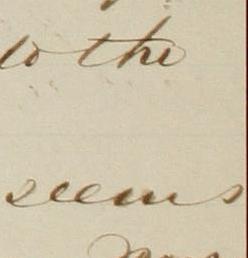 to the
seems